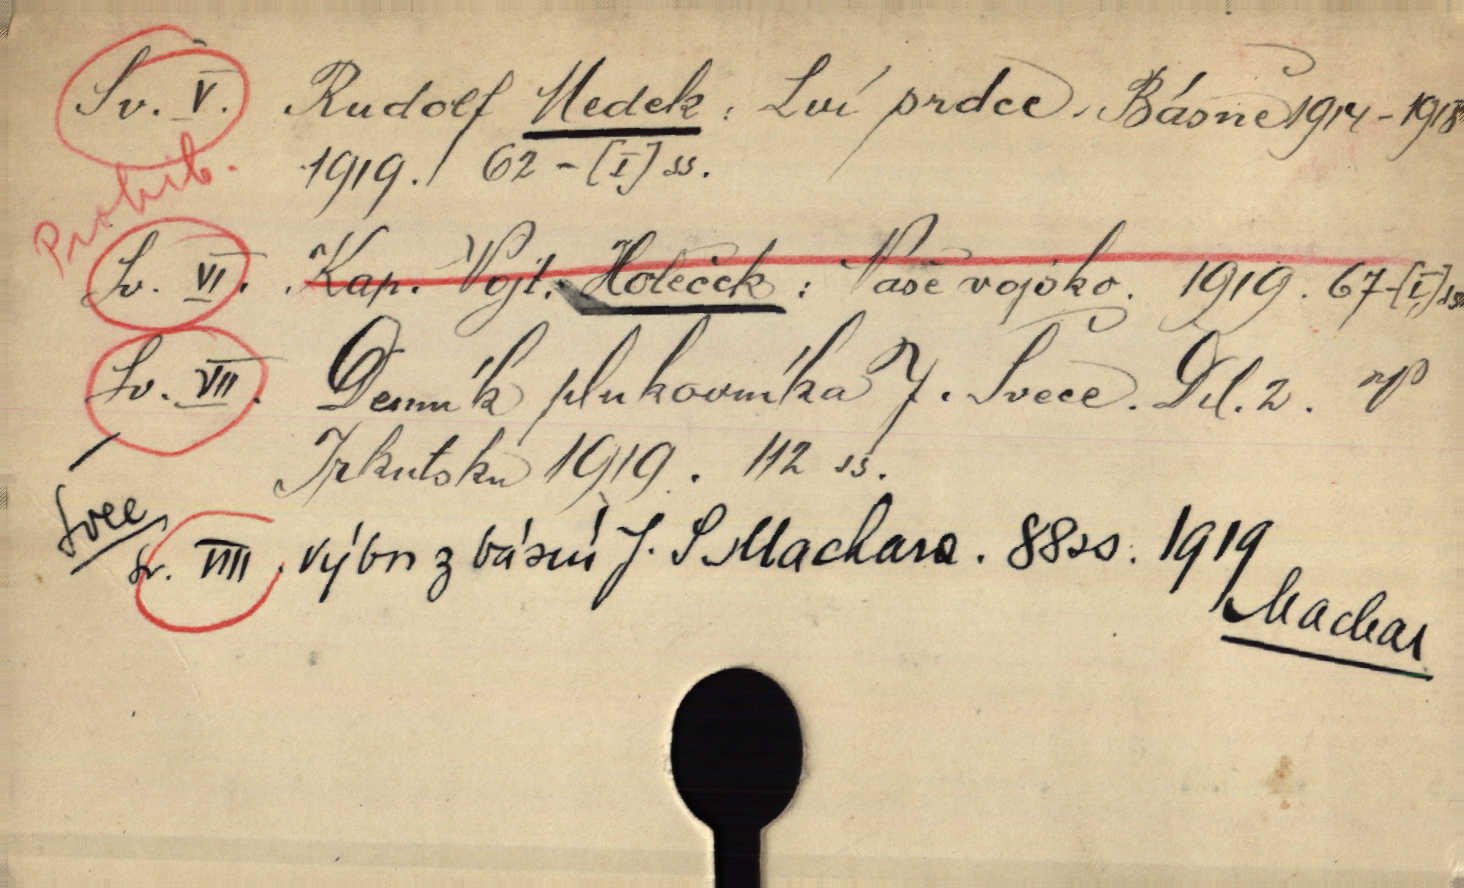 Sv. V. Rudolf Medek: Lví srdce. Básně 1914-1918
1919. 62-[I] ss.
Prohib.
Sv. VI. Kap. Vojt. Holeček: Naše vojsko. 1919. 67-[I] ss
Sv. VII. Denník plukovníka J. Švece. Díl. 2. v
Irkutsku 1919. 112 ss.
Švec
Sv. VIII. Výbor z básní J. S. Machara. 88 ss. 1919
Machar